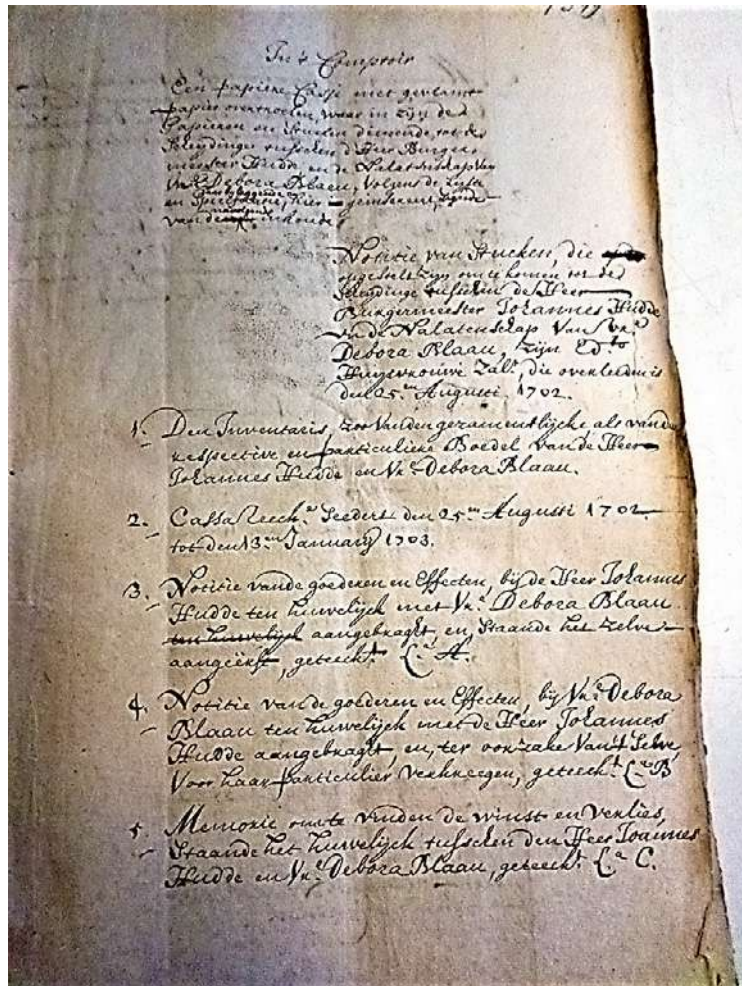 In't Comptoir
Een papiere Casje met gevlamt
papier overtrocken, waer in zijn de
Papieren en Stucken dienende tot de
Scheydinge tusschen d'Heer Burger
meester Hudde en de Nalatenschap van
Vrꝰ Debora Blaeu, volgens de Lijste
en hier geinsereert, zijnde
van den inhoude
Notitie van Stucken, die
opgestelt zijn om te komen tot de
Scheydinge tusschen de Heer
Burgermeester Johannes Hudde
en de Nalatenschap van Vrꝰ
Debora Blaau, zijn Ed.ts
Huysvrouwe Zalr., die overleden is
den 25.en Augusti 1702.
1. Den Inventaris, zoo vanden gezamentlijcke als vande
respective en particuliere Boedel van de Heer
Johannes Hudde en Vrꝰ Debora Blaau.
2. Cassa Reech.g Seedert den 25.en Augusti 1702
tot den 13.en January 1703.
3. Notitie vande goederen en Effecten, bij de Heer Johannes
Hudde ten huwelijck met Vrꝰ Debora Blaau
ten huwelijck aangebraght, en, Staande het zelve
aangeërft, geteeck.t L.a A.
4. Notitie van de goederen en Effecten, bij Vrꝰ Debora
Blaau ten huwelijck met de Heer Johannes
Hudde aangebraght, en, ter oorzake van't Selve,
Voor haar particulier verkreegen, geteeck.t L.a B
5. Memorie om te vinden de winst en verlies,
Staande het huwelijck tusschen den Heer Joannes
Hudde en Vrꝰ Debora Blaau, geteeck.t L.a C.